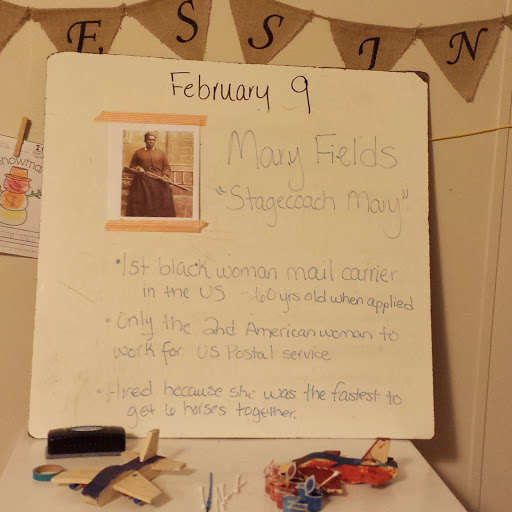 ESSIN
February 9
Mary Fields
"Stagecoach Mary"
• 1st black woman mail carrier
in the US - 60 yrs old when applied
• Only the 2nd American woman to
work for US Postal service
• Hired because she was the fastest to
get 6 horses together.
nowma